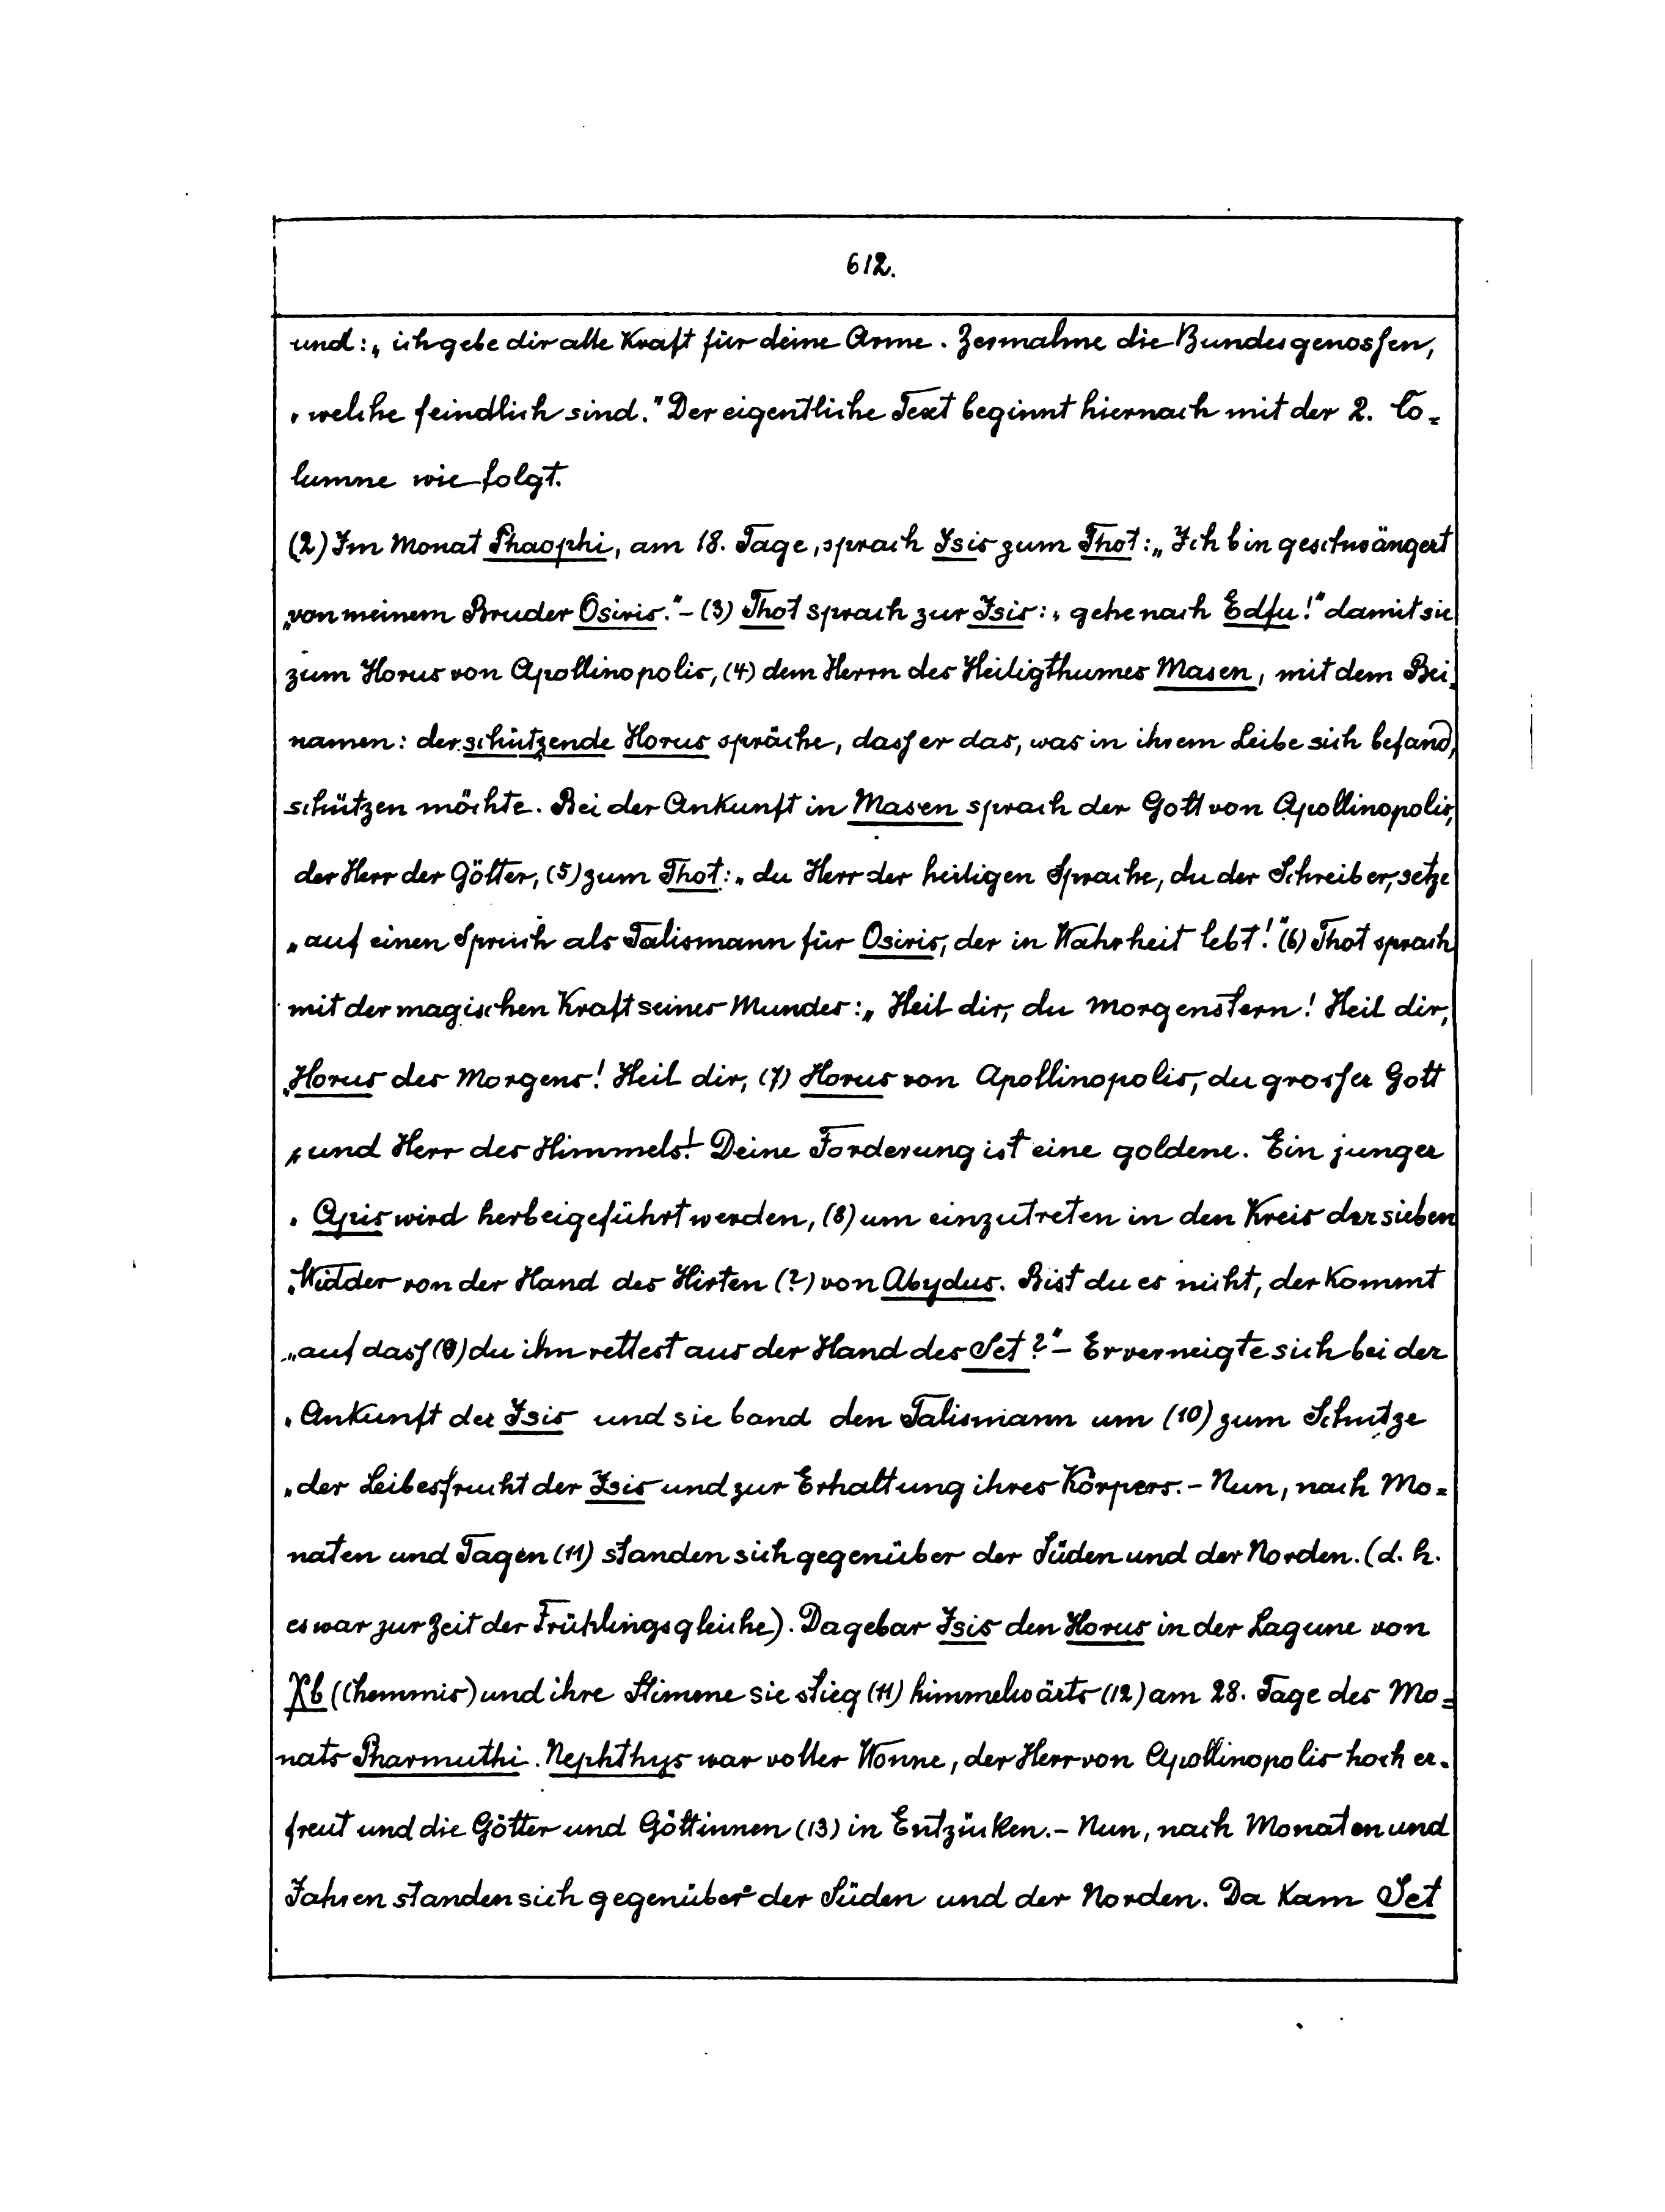 612.
und: „ich gebe dir alle Kraft für deine Arme. Zermalme die Bundesgenossen,
„welche feindlich sind." Der eigentliche Text beginnt hiernach mit der 2. Co=
lumne wie folgt.
(2) Im Monat Phaophi, am 18. Tage, sprach Isis zum Thot: „Ich bin geschwängert
„von meinem Bruder Osiris." – (3) Thot sprach zur Isis: „gehe nach Edfu!" damit sie
zum Horus von Apollinopolis, (4) dem Herrn des Heiligthumes Masen, mit dem Bei=
namen: der schützende Horus spräche, dass er das, was in ihrem Leibe sich befand,
schützen möchte. Bei der Ankunft in Masen sprach der Gott von Apollinopolis,
der Herr der Götter, (5) zum Thot: „du Herr der heiligen Sprache, du der Schreiber, setze
„auf einen Spruch als Talismann für Osiris, der in Wahrheit lebt!" (6) Thot sprach
mit der magischen Kraft seines Mundes: „Heil dir, du Morgenstern! Heil dir,
„Horus des Morgens! Heil dir, (7) Horus von Apollinopolis, du grosser Gott
„und Herr des Himmels! Deine Forderung ist eine goldene. Ein junger
„Apis wird herbeigeführt werden, (8) um einzutreten in den Kreis der sieben
„Widder von der Hand des Hirten (?) von Abydus. Bist du es nicht, der kommt
„auf dass (9) du ihn rettest aus der Hand des Set?" – Er verneigte sich bei der
„Ankunft der Isis und sie band den Talismann um (10) zum Schutze
„der Leibesfrucht der Isis und zur Erhaltung ihres Körpers. – Nun, nach Mo=
naten und Tagen (11) standen sich gegenüber der Süden und der Norden. (d. h.
es war zur Zeit der Frühlingsgleiche). Da gebar Isis den Horus in der Lagune von
Xb (Chemmis) und ihre Stimme sie stieg (11) himmelwärts (12) am 28. Tage des Mo=
nats Pharmuthi. Nephthys war voller Wonne, der Herr von Apollinopolis hoch er=
freut und die Götter und Göttinnen (13) in Entzücken. – Nun, nach Monaten und
Jahren standen sich gegenüber der Süden und der Norden. Da kam Set